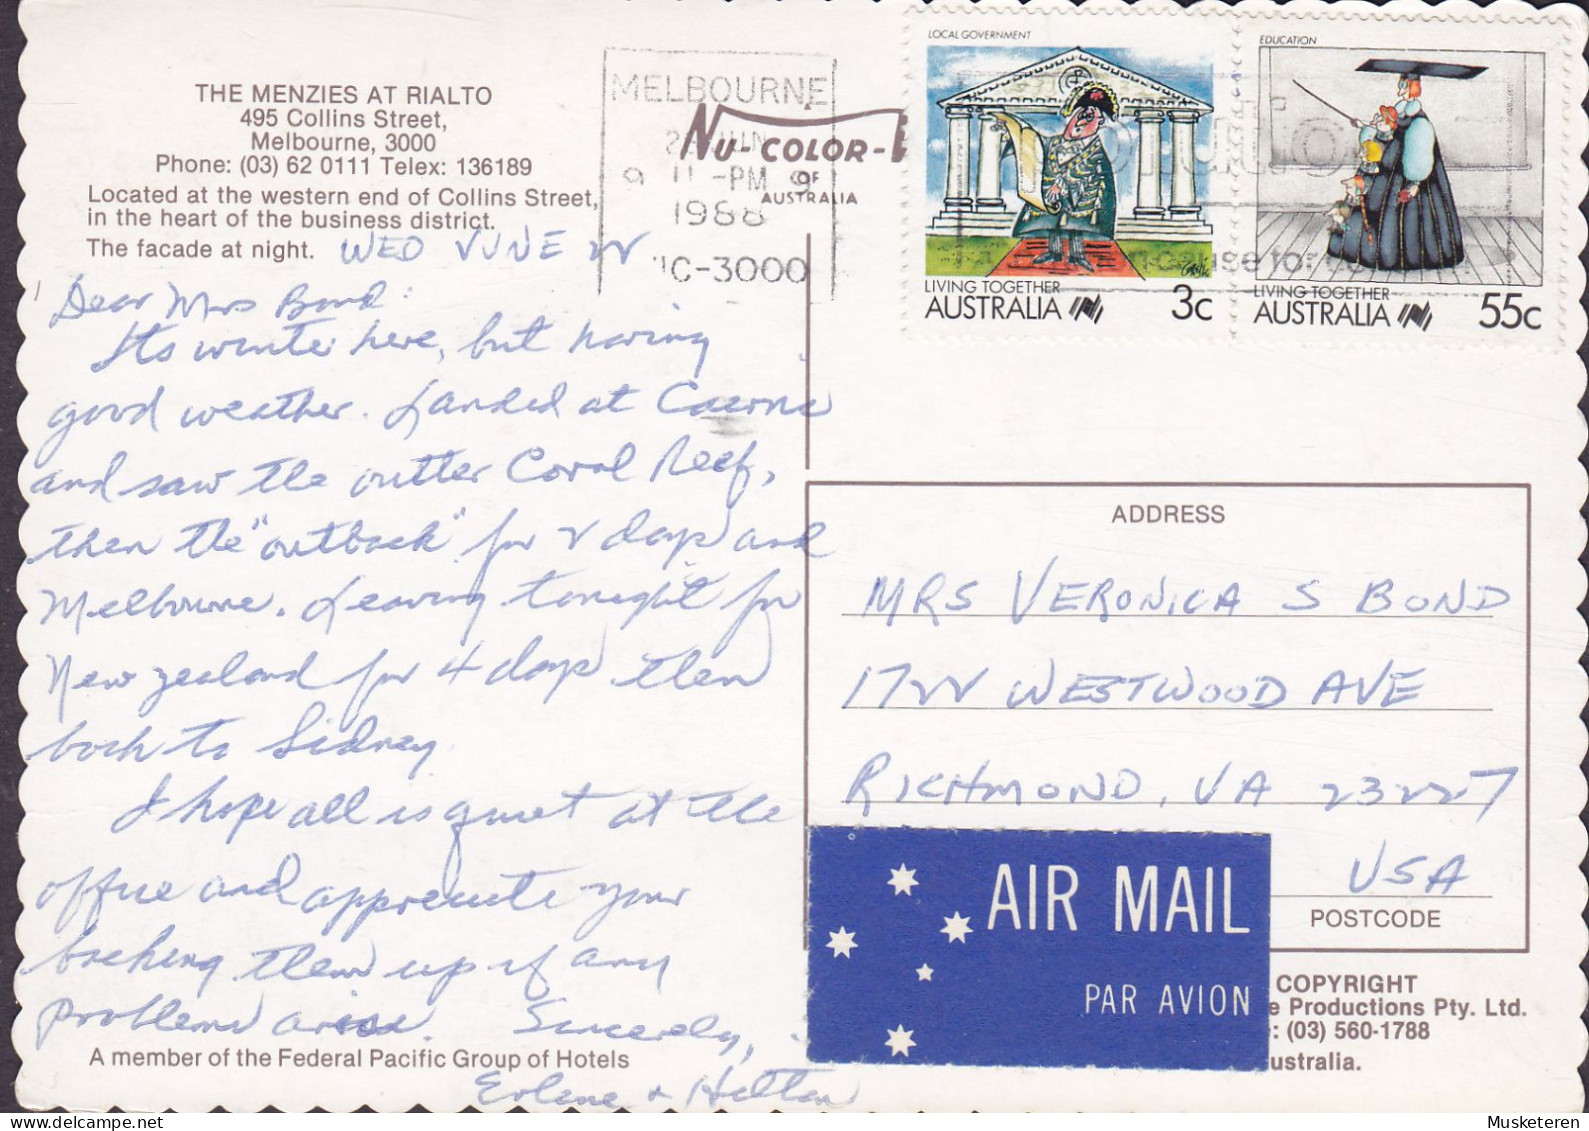 THE MENZIES AT RIALTO
495 Collins Street,
Melbourne, 3000
Phone: (03) 62 0111 Telex: 136189
Located at the western end of Collins Street,
in the heart of the business district.
The facade at night.
WED JUNE 22
Dear Mrs Bond:
Its winter here, but having
good weather. Landed at Cairns
and saw the outter Coral Reef,
then the "outback" for 2 days and
Melbourne. Leaving tonight for
New Zealand for 4 days then
back to Sidney
I hope all is quiet at the
office and appreciate your
backing them up if any
problems arise. Sincerely,
Erlene + Hilton
A member of the Federal Pacific Group of Hotels
MELBOURNE
JUN
9 11-PM 9
1988
VIC-3000
A
NU-COLOR-
OF
AUSTRALIA
LOCAL GOVERNMENT
LIVING TOGETHER
AUSTRALIA 3c
EDUCATION
LIVING TOGETHER
AUSTRALIA 55c
use for
ADDRESS
MRS VERONICA S BOND
1722 WESTWOOD AVE
RICHMOND, VA 23227
USA
POSTCODE
AIR MAIL
PAR AVION
COPYRIGHT
e Productions Pty. Ltd.
: (03) 560-1788
ustralia.
Musketeren